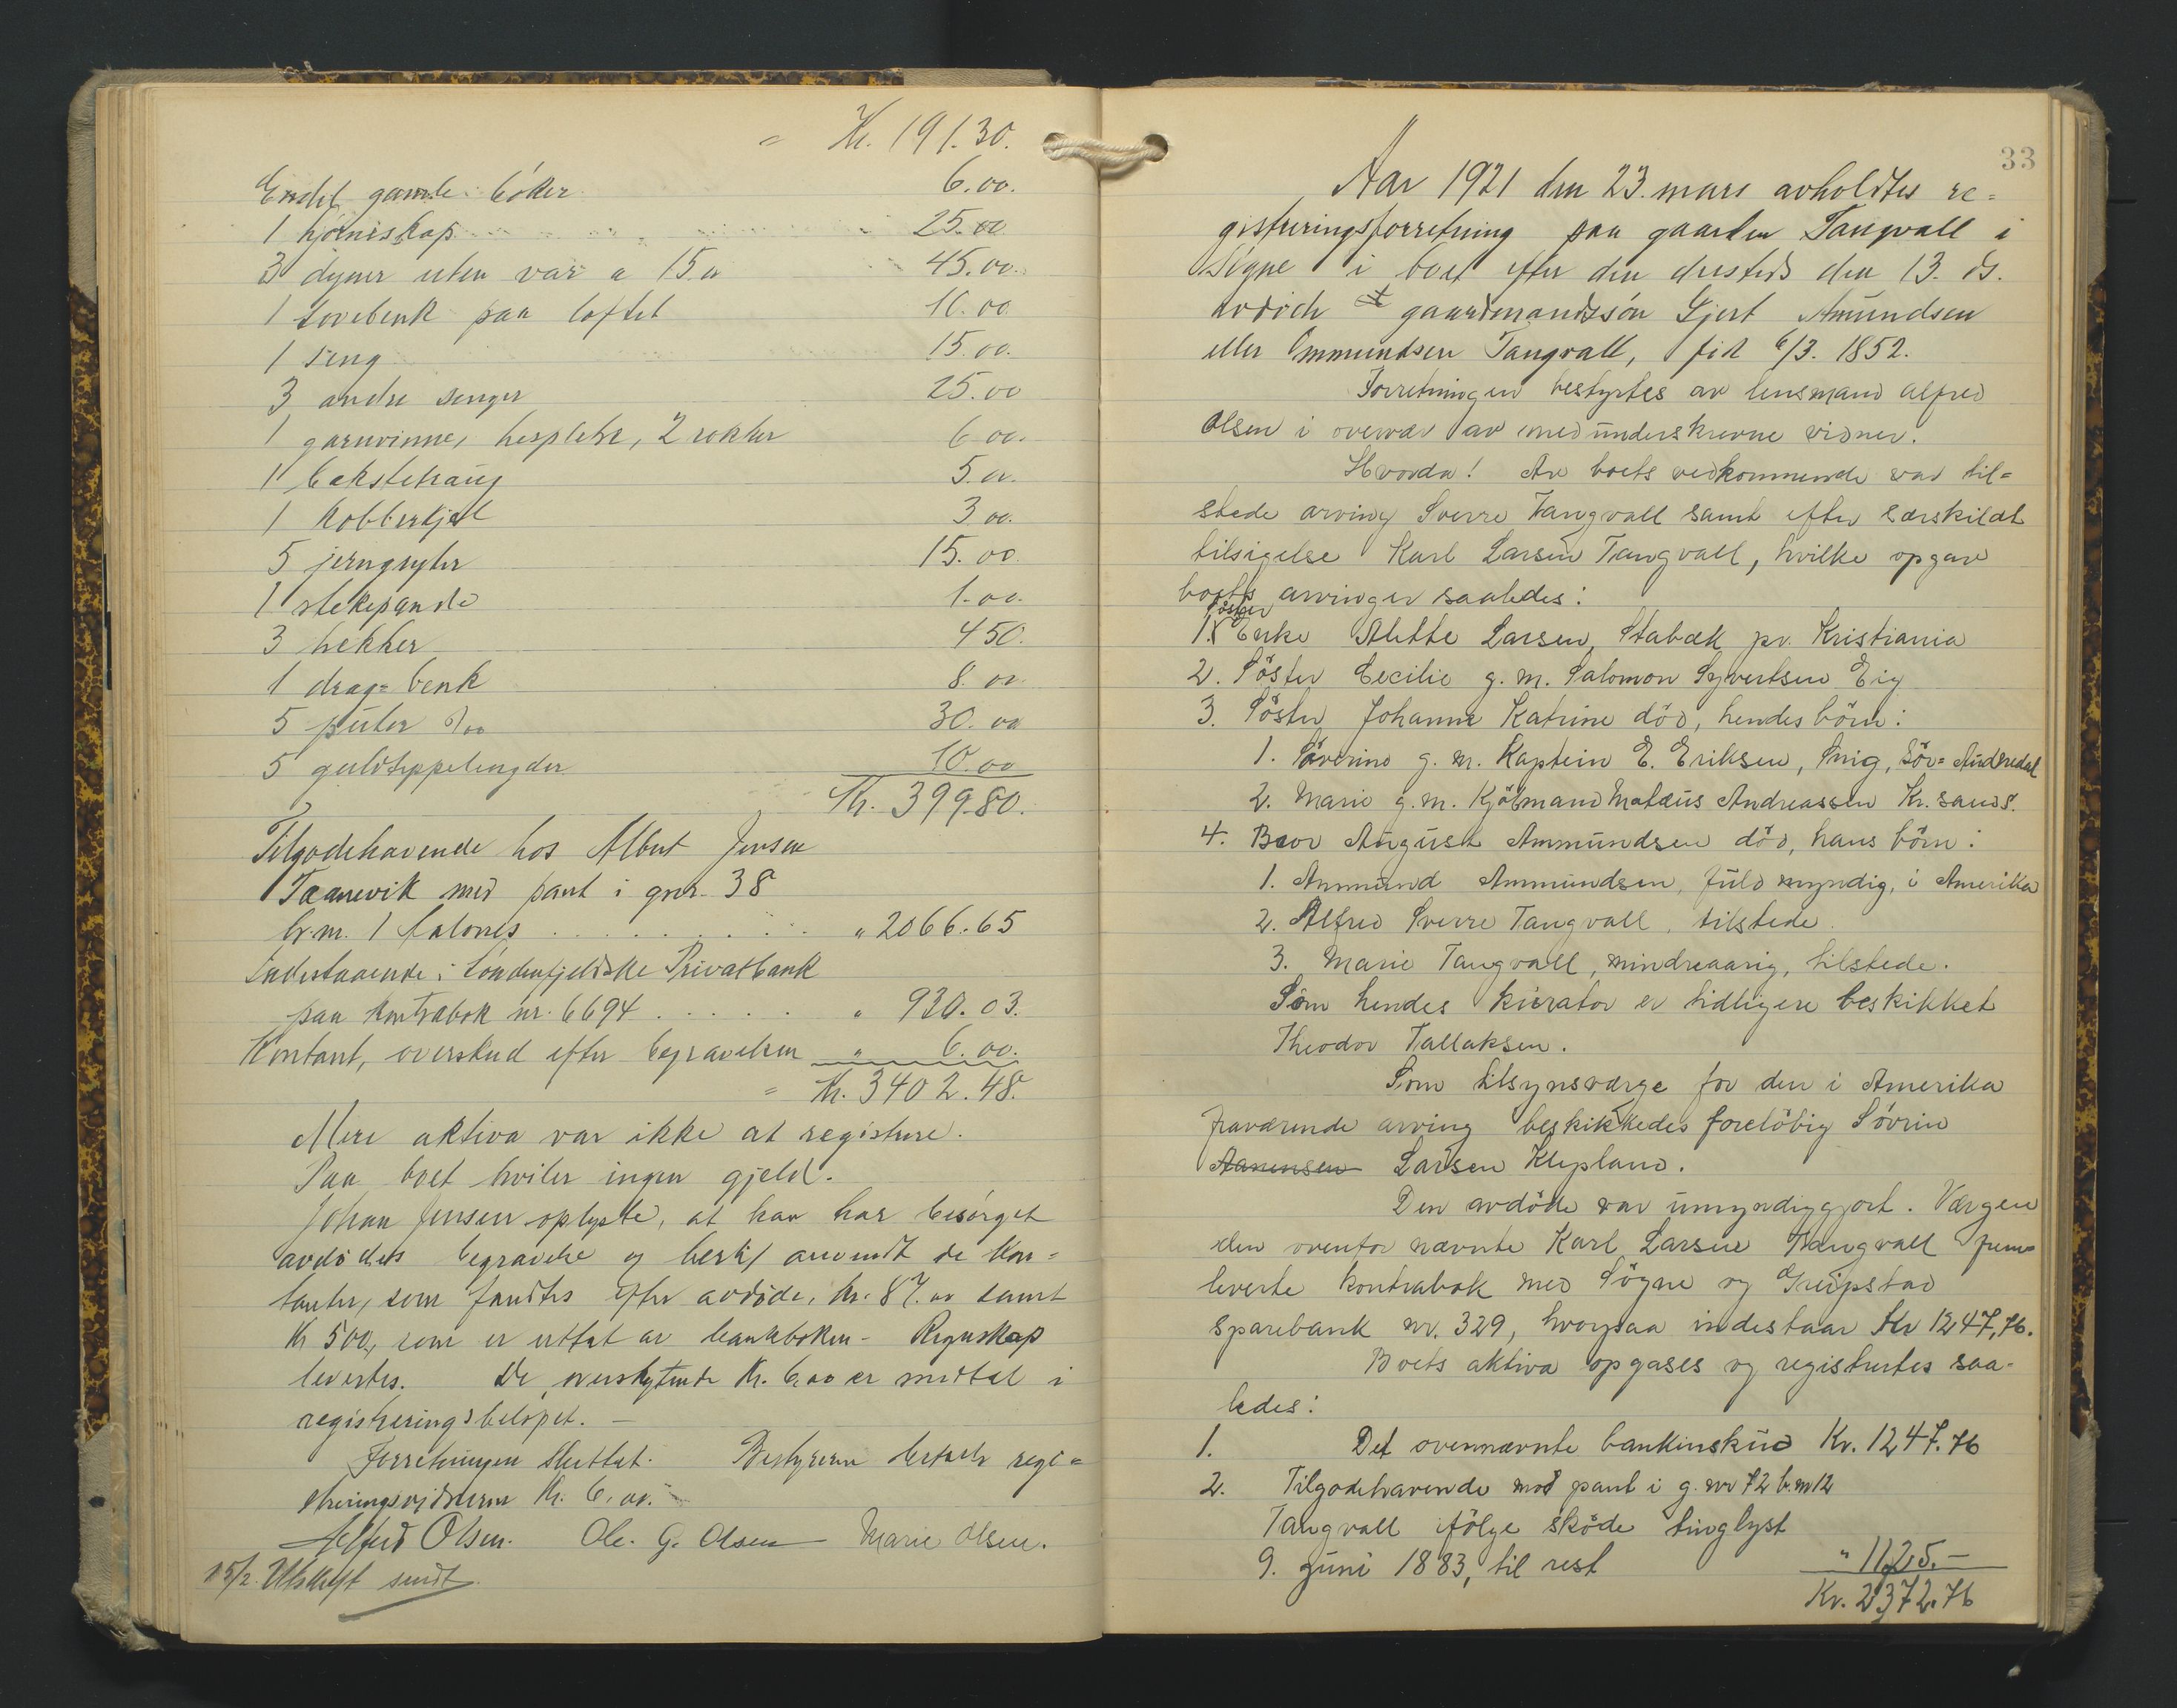 = Kr. 191.30.
Endel gamle bøker 6.00.
1 hjørneskap 25.00
3 dyner uten var a 15.00 45.00.
1 sovebenk paa loftet 10.00
1 seng 15.00.
3 andre senger 25.00
1 garnvinne, hespletre, 2 rokker 6.00.
1 bakstetraug 5.00.
1 kobberkjel 3.00.
5 jerngryter 15.00.
1 stekepande 1.00.
3 hekker 4 50.
1 drag=benk 8.00
5 puter 30.00
5 guldteppelengder 10.00
Kr. 399.80.
Tilgodehavende hos Albert Jensen
Taanevik med pant i gnr. 38
br.nr. 1 " 2066.65
Indestaaende i Søndenfjeldske Privatbank
paa kontrabok nr. 6694 " 930.03.
Kontant, overskud efter begravelsen " 6.00.
= Kr. 3402.48.
Mere aktiva var ikke at registrere.
Paa boet hviler ingen gjeld.
Johan Jensen oplyste, at han har besørget
avdødes begravelse og hertil anvendt de kon=
tanter, som fandtes efter avdøde, kr. 87.00 samt
Kr 500, som er uttat av bankboken - Regnskap
levertes. De overskytende Kr. 6.00 er medtat i
registreringsbeløpet. -
Forretningen sluttet. Bestyreren betalte regi=
streringsvidnerne Kr. 6.00. -
Alfred Olsen. Ole G. Olsen Marie Olsen.
15/2. Utskrift sendt.
33
Aar 1921 den 23. mars avholdtes re=
gistreringsforretning paa gaarden Tangvall i
Søgne i boet efter den dersteds den 13. ds.
avdøde gaardmandssøn Gjert Amundsen
eller Ommundsen Tangvall, fød 6/3. 1852.
Forretningen bestyrtes av lensmand Alfred
Olsen i overvær av medunderskrevne vidner.
Hvorda! Av boets vedkommende var til=
stede arving Sverre Tangvall samt efter særskildt
tilsigelse Karl Larsen Tangvall, hvilke opgav
boets arvinger saaledes:
1. Søster Enke Alette Larsen, Stabæk pr. Kristiania
2. Söster Cecilie g. m. Salomon Syvertsen Eig
3. Söster Johanne Katrine död, hendes börn:
1. Säverine g. m. Kaptein E. Eriksen, Snig, Sör=Audnedal
2. Marie g. m. Kjöbmand Matæus Andreassen Kr.sand S.
4. Bror August Ammundsen död, hans börn:
1. Ammund Ammundsen, fuld myndig, i Amerika
2. Alfred Sverre Tangvall, tilstede.
3. Marie Tangvall, mindreaarig, tilstede.
Som hendes kurator er tidligere beskikket
Theodor Tallaksen.
Som tilsynsværge for den i Amerika
fraværende arving beskikkedes foreløbig Sövrin
Aanensen Larsen Klepland.
Den avdöde var umyndiggjort. Værgen
den ovenfor nævnte Karl Larsen Tangvall frem=
leverte kontrabok med Sögne og Greipstad
sparebank nr. 329, hvorpaa indestaar Kr 1247,76.
Boets aktiva opgaves og registrertes saa-
ledes:
1. Det ovennævnte bankinskud Kr. 1247.76
2. Tilgodehavende mod pant i g. nr 72 b. nr 12
Tangvall ifölge sköde tinglyst
9. juni 1883, til rest " 1125.-
Kr. 2372.76